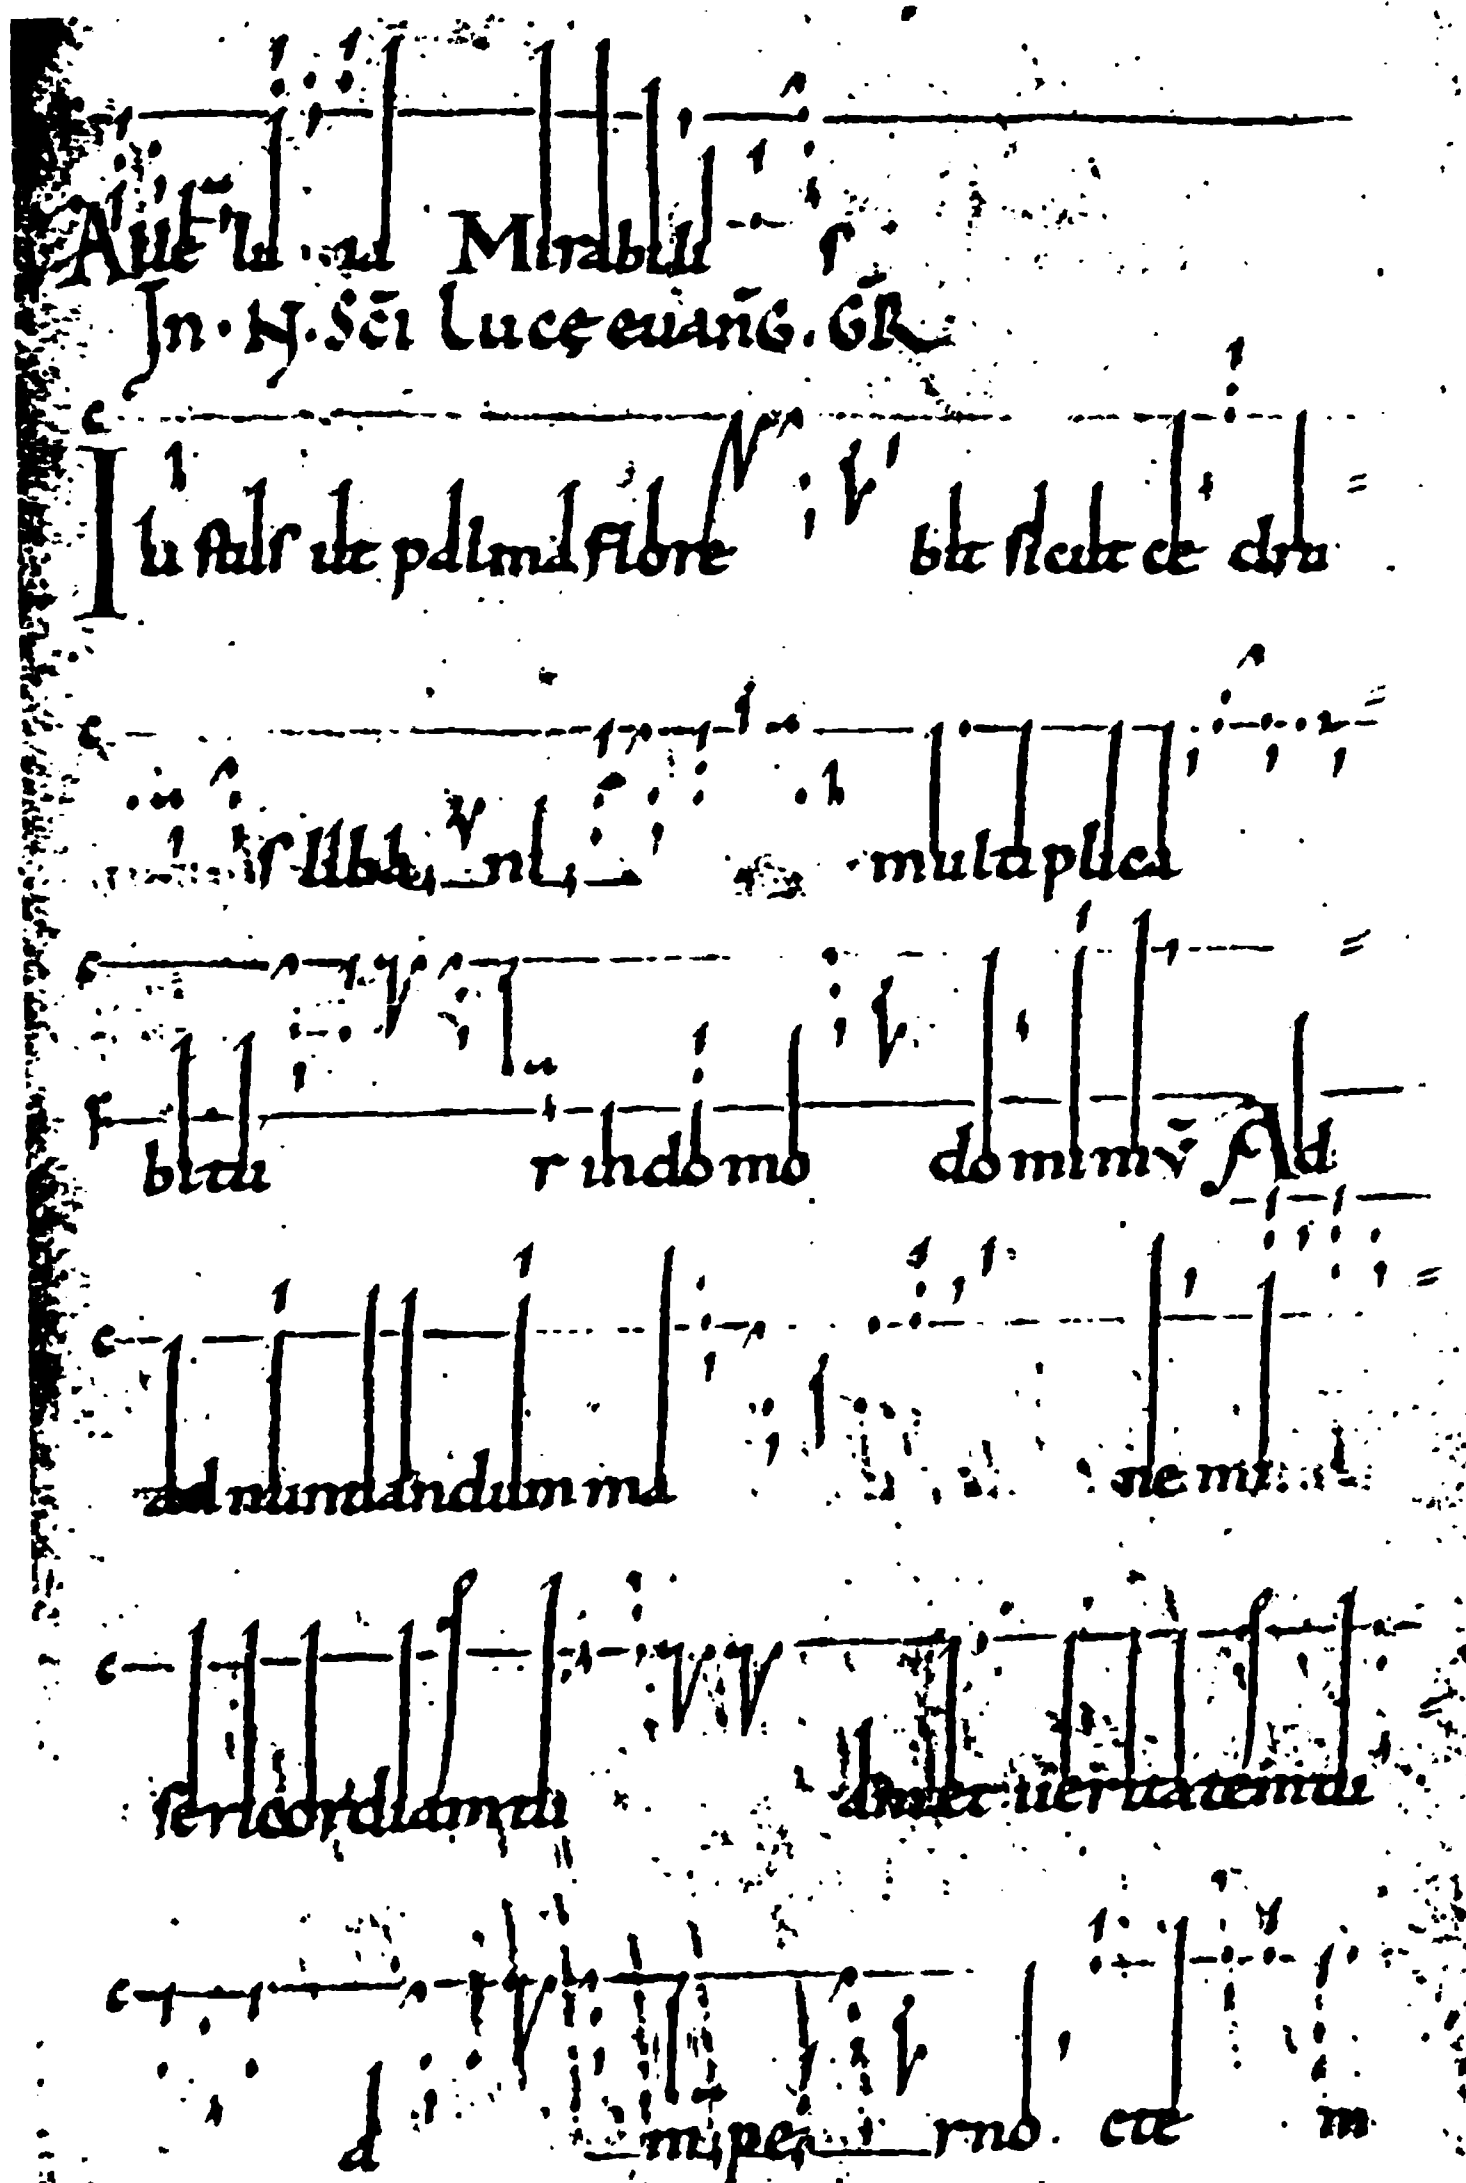 Alle lu ia Mirabili s
In. N. Sc̄i Lucę euan̄G. GR̄
Iustus ut palma flore bit sicut ce dru
s liba ni multiplica
bitu r indomo domini v̄ Ad
ad nuntiandum ma ne mi
sericordiam tu am et ueritatem tu
a m per no cte m